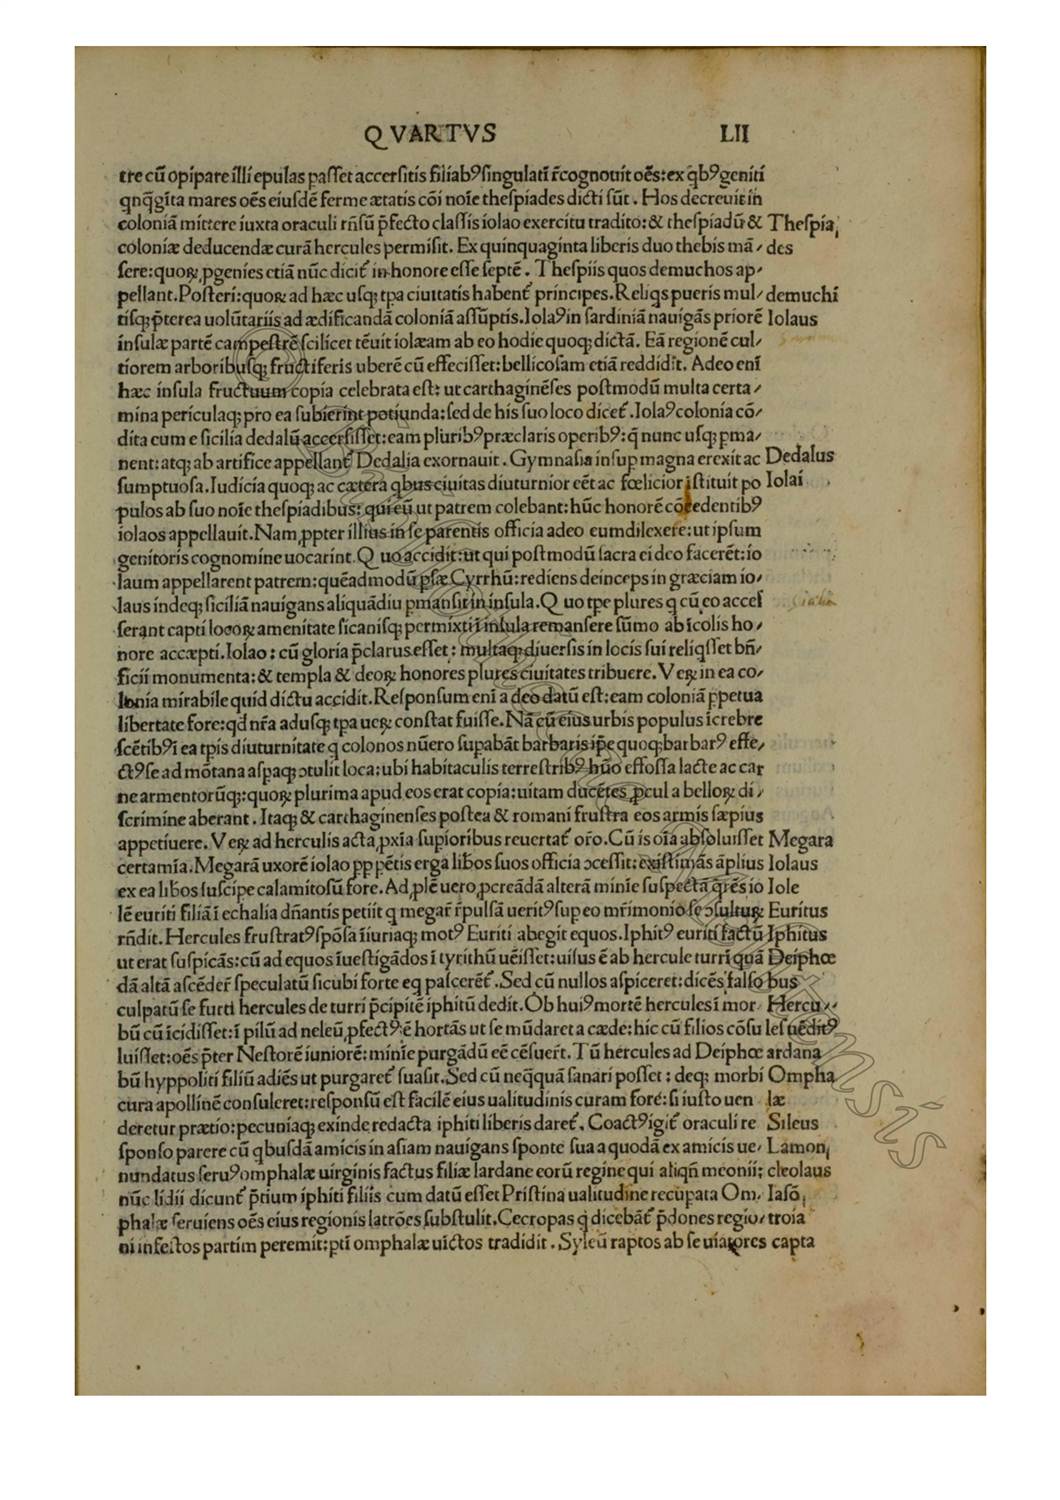 QVARTVS LII
tre cū opipare illi epulas paſſet accerſitis filiabꝰ ſingulatī r̄cognouit oēs: ex q̄bꝰ geniti
qnq̄gīta mares oēs eiuſdē ferme ætatis cōi noīe theſpiades dicti ſūt. Hos decreuit in
coloniā mittere iuxta oraculi rn̄ſū p̄fecto claſſis iolao exercitu tradito: & theſpiadū & Theſpia,
coloniæ deducendæ curā hercules permiſit. Ex quinquaginta liberis duo thebis mā/ des
ſere: quoꝝ ꝓgenies etiā nūc dicit̄ in honore eſſe ſeptē. Theſpiis quos demuchos ap/
pellant. Poſteri: quoꝝ ad hæc uſq; tpa ciuitatis habent̄ principes. Reliq̄s pueris mul/ demuchi
tiſq; p̄terea uolūtariis ad ædificandā coloniā aſſūptis. Iolaꝰ in ſardiniā nauigās priorē Iolaus
inſulæ partē campeſtrē ſcilicet tēuit iolæam ab eo hodie quoq; dictā. Eā regionē cul/
tiorem arboribuſq; fructiferis uberē cū effeciſſet: bellicoſam etiā reddidit. Adeo enī
hæc inſula fructuum copia celebrata eſt: ut carthaginēſes poſtmodū multa certa/
mina periculaq; pro ea ſubierint potiunda: ſed de his ſuo loco dicet̄. Iolaꝰ colonia cō/
dita cum e ſicilia dedalū accerſiſſet: eam pluribꝰ præclaris operibꝰ: q̄ nunc uſq; pma/
nent: atq; ab artifice appellant̄ Dedalia exornauit. Gymnaſia inſup magna erexit ac Dedalus
ſumptuoſa. Iudicia quoq; ac cætera qbus ciuitas diuturnior eēt ac fœlicior īſtituit po Iolai
pulos ab ſuo noīe theſpiadibus: qui eū ut patrem colebant: hūc honorē cōcedentibꝰ
iolaos appellauit. Nam ꝓpter illius in ſe parentis officia adeo eum dilexere: ut ipſum
genitoris cognomine uocarint. Quo accidit: ut qui poſtmodū ſacra ei deo facerēt: io
laum appellarent patrem: quēadmodū pſæ Cyrrhū: rediens deinceps in græciam io/
laus indeq; ſiciliā nauigans aliquādiu pmanſit in inſula. Quo tpe plures q cū eo acceſ
ſerant capti locoꝝ amenitate ſicaniſq; permixti ī inſula remanſere ſūmo ab īcolis ho/
nore accæpti. Iolao: cū gloria p̄clarus eſſet: multaq; diuerſis in locis ſui reliqſſet bn̄/
ficii monumenta: & templa & deoꝝ honores plures ciuitates tribuere. Veꝝ in ea co/
lonia mirabile quid dictu accidit. Reſponſum enī a deo datū eſt: eam coloniā ꝑpetua
libertate fore: qd nr̄a aduſq; tpa ueꝝ conſtat fuiſſe. Nā cū eius urbis populus īcrebre
ſcētibꝰ ī ea tpis diuturnitate q colonos nūero ſupabāt barbaris ipē quoq; barbarꝰ effe/
ctꝰ ſe ad mōtana aſpaq; ↄtulit loca: ubi habitaculis terreſtribꝰ hūo effoſſa lacte ac car
ne armentorūq;: quoꝝ plurima apud eos erat copia: uitam ducētes ꝓcul a belloꝝ di/
ſcrimine aberant. Itaq; & carthaginenſes poſtea & romani fruſtra eos armis ſæpius
appetiuere. Veꝝ ad herculis acta ꝓxīa ſupioribus reuertat̄ or̄o. Cū is oīa abſoluiſſet Megara
certamīa. Megarā uxorē iolao pp pētis erga lib̄os ſuos officia ↄceſſit: exiſtimās āplius Iolaus
ex ea lib̄os ſuſcipe calamitoſū fore. Ad ꝓlē uero ꝓcreādā alterā minīe ſuſpectā qrēs io Iole
lē euriti filiā ī echalia dn̄antis petiit q megar̄ r̄pulſā ueritꝰ ſup eo mr̄imonio ſe ↄſultuꝝ Euritus
rn̄dit. Hercules fruſtratꝰ ſpōſa īiuriaq; motꝰ Euriti abegit equos. Iphitꝰ euriti factū Iphitus
ut erat ſuſpicās: cū ad equos īueſtigādos ī tyrithū uēiſſet: uiſus ē ab hercule turrī quā Deiphœ
dā altā aſcēder̄ ſpeculatū ſicubi forte eq paſcerēt̄. Sed cū nullos aſpiceret: dicēs falſo bus
culpatū ſe furti hercules de turri p̄cipitē iphitū dedit. Ob huiꝰ mortē hercules ī mor Hercu/
bū cū īcidiſſet: ī pilū ad neleū ꝓfectꝰ ē hortās ut ſe mūdaret a cæde: hic cū filios cōſu leſ uēditꝰ
luiſſet: oēs p̄ter Neſtorē iuniorē: minīe purgādū eē cēſuer̄t. Tū hercules ad Deiphœ ardana
bū hyppoliti filiū adiēs ut purgaret̄ ſuaſit. Sed cū neq̄quā ſanari poſſet: deq; morbi Ompha
cura apollinē conſuleret: reſponſū eſt facilē eius ualitudinis curam forē: ſi iuſto uen læ
deretur prætio: pecuniaq; exinde redacta iphiti liberis daret̄. Coactꝰ igit̄ oraculi re Sileus
ſponſo parere cū qbuſdā amicis in aſiam nauigans ſponte ſua a quodā ex amicis ue/ Lamon,
nundatus ſeruꝰ omphalæ uirginis factus filiæ Iardane eorū regine qui aliqn̄ meonii; cleolaus
nūc lidii dicunt̄ p̄tium iphiti filiis cum datū eſſet Priſtina ualitudine recupata Om/ Iaſō,
phalæ ſeruiens oēs eius regionis latrōes ſubſtulit. Cecropas q dicebāt̄ p̄dones regio/ troia
ni infeſtos partim peremit: ptī omphalæ uictos tradidit. Syleū raptos ab ſe uiatores capta